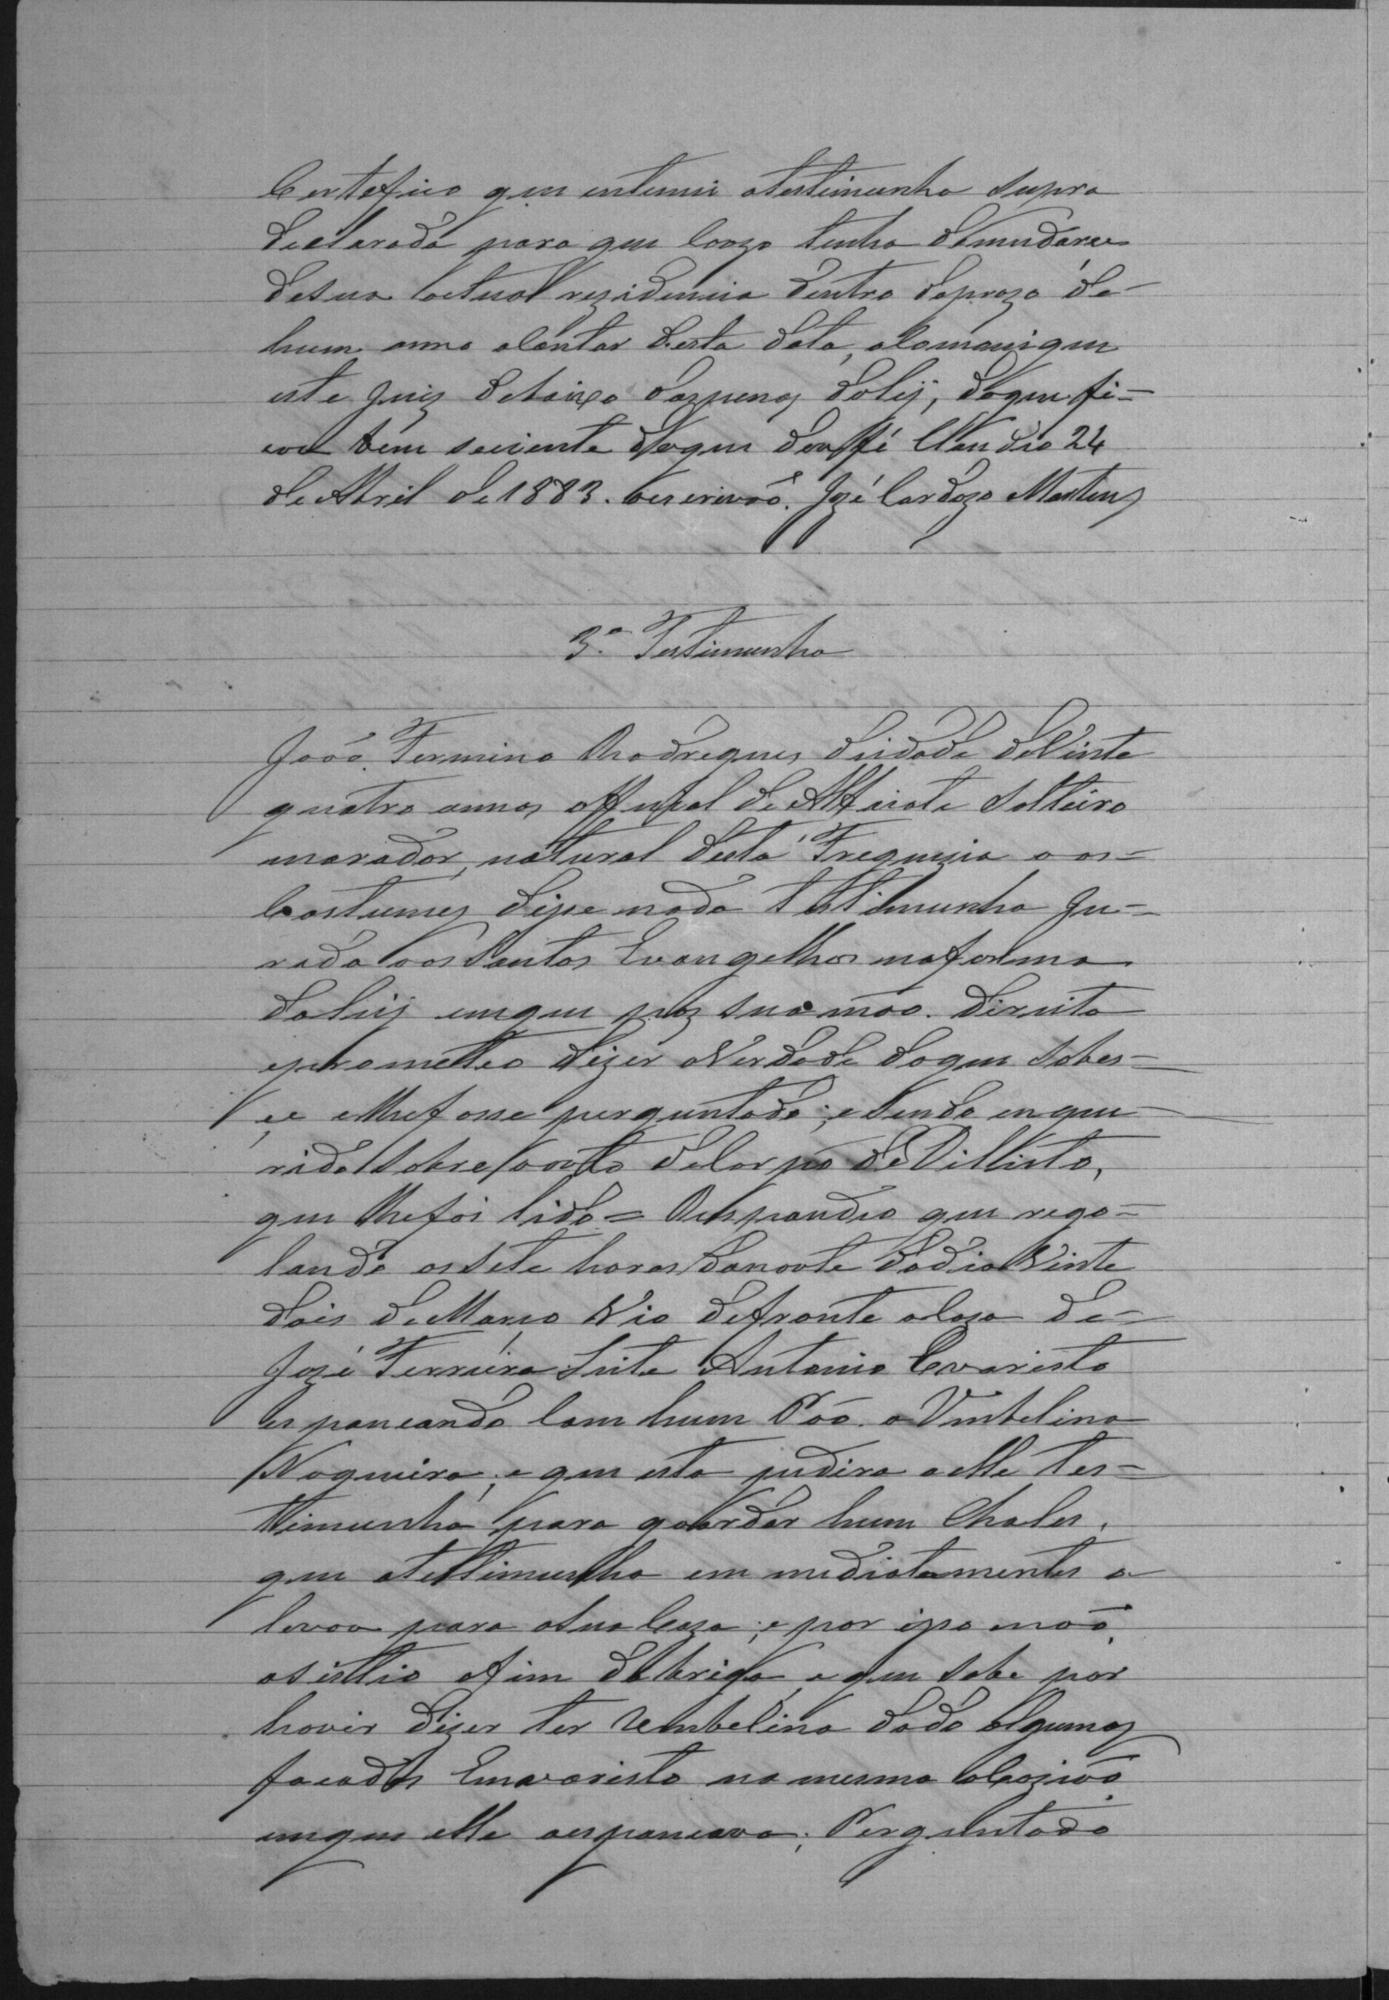 Certefico que entemei atestimunha supra
declarada para que Cazo tenha demudarce
desua actual rezidencia dentro doprazo de-
hum anno aContar desta data, aComoniqui
este Juiz debaixo daspenas daley, doque fi-
cou bem seciente doque dou fé Claudio 24
de Abril de 1883. Oescrivaõ. Jozé Cardozo Martins
3ª Testimunha
Joaõ Fermino Rhodregues deidade deVinte
quatro annos offecial de Alfaiate Solteiro
morador, natural desta Freguezia aos=
Costumes disse nada testimunha Ju=
rada aos Santos Evangelhos naforma
daley emque pôz sua maõ direita
eprometteo dizer aVerdade doque Sobes=
ce elhefosse perguntado; eSendo enque-
rido Sobre oauto deCorpo de Dellicto,
que lhefoi lido= Respondeo que rego=
lando as Sete horas danoute dodia Vinte
dois deMarço Vio defronte aCaza de=
Jozé Ferreira Leite Antonio Evaristo
espancando Com hum Páo a Umbelino
Nogueira; e que este pedira a elle tes=
timunha para goardar hum Chales,
que atestimunha emmediatamente o
levou para asua Caza; e por isso naõ
asistio ofim dabriga, e que sabe por
houvir dizer ter Umbelino dado algumas
facadas Emvaristo na mesma oCaziaõ
emque elle oespancava; Perguntado